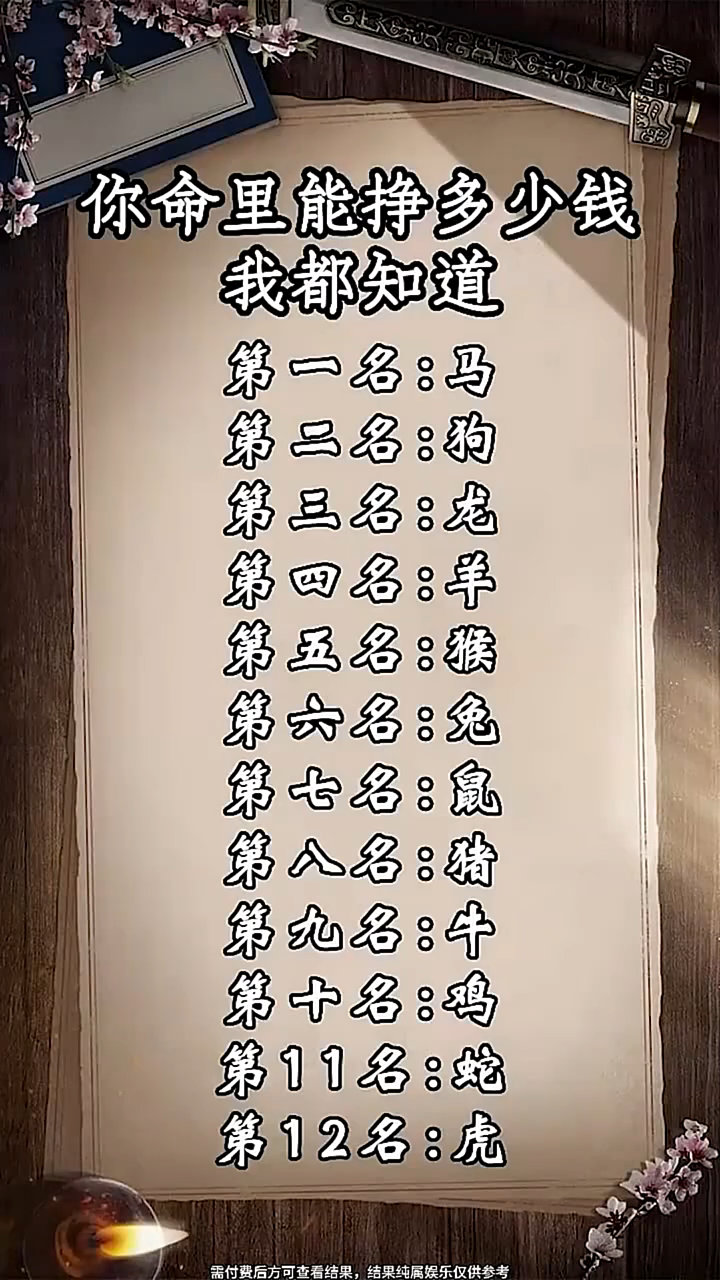 你命里能挣多少钱
我都知道
第一名:马
第二名:狗
第三名:龙
第四名:羊
第五名:猴
第六名:兔
第七名:鼠
第八名:猪
第九名:牛
第十名:鸡
第11名:蛇
第12名:虎
需付费后方可查看结果，结果纯属娱乐仅供参考